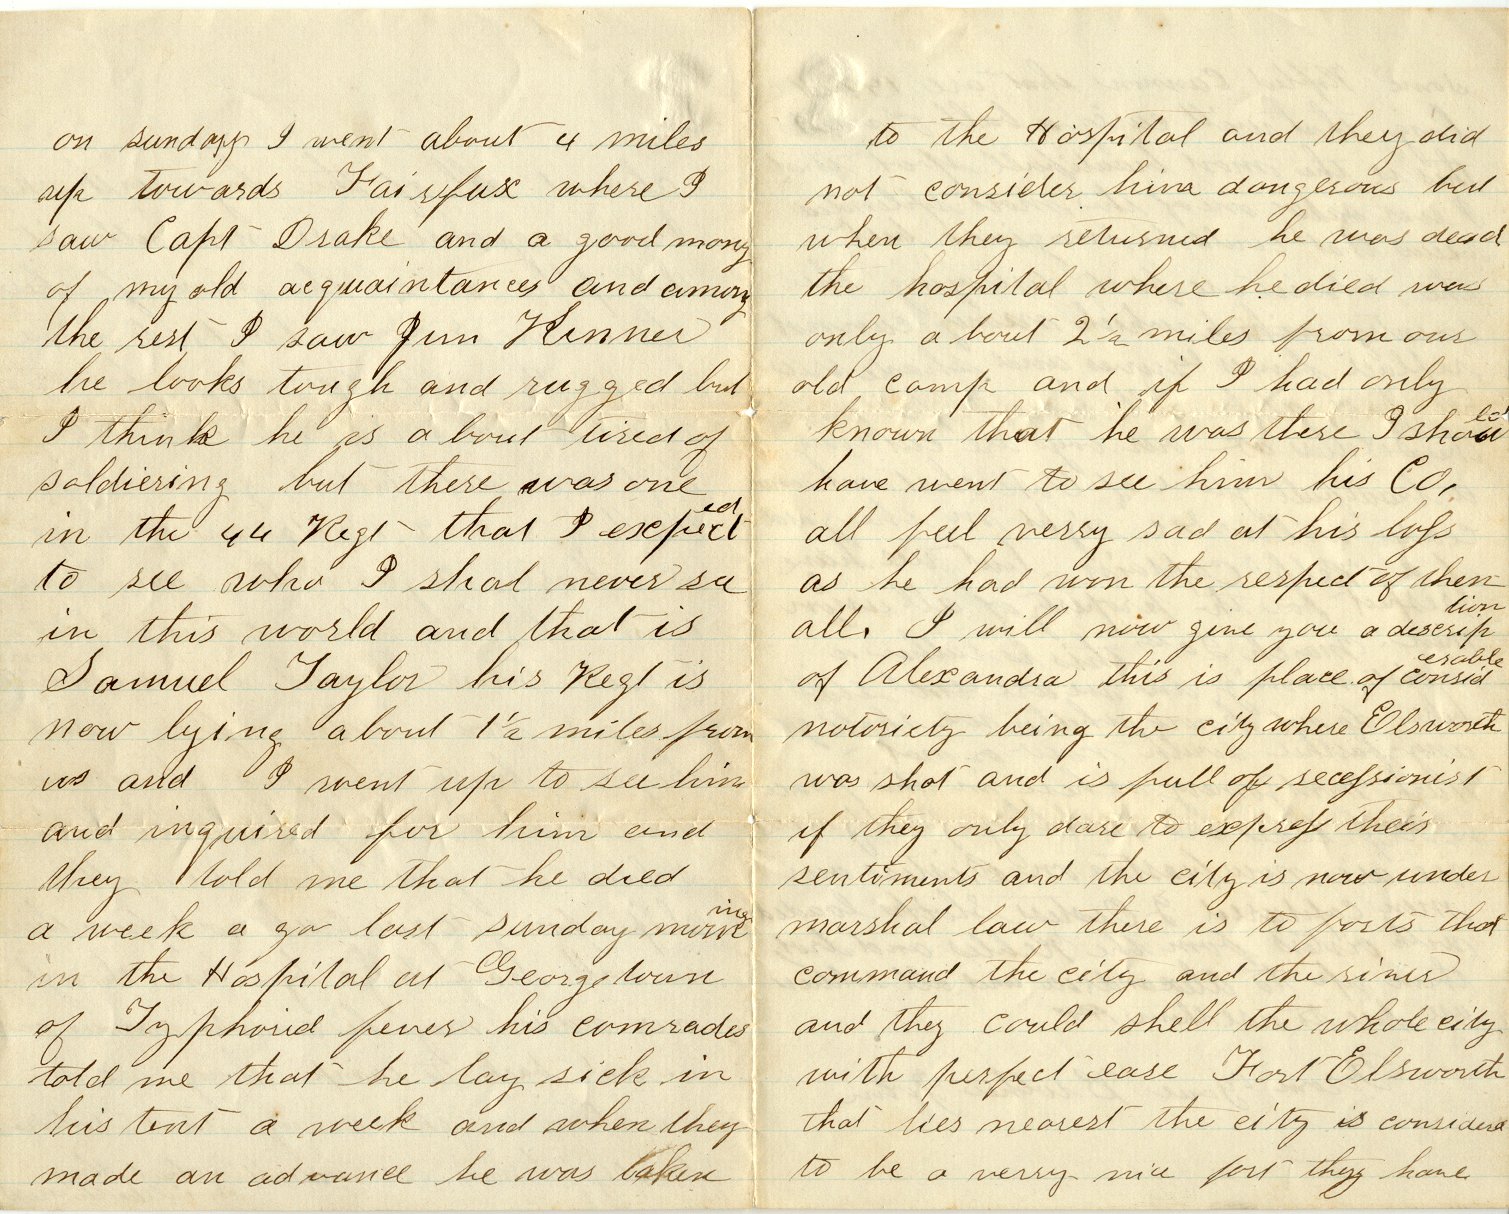 on sunday I went about 4 miles
up towards Fairfax where I
saw Capt Drake and a good many
of my old acquaintances and among
the rest I saw Jim Kinner
he looks tough and rugged but
I think he is about tired of
soldiering but there was one
in the 44 Regt that I expected
to see who I shal never see
in this world and that is
Samuel Taylor his Regt is
now lying about 1½ miles from
us and I went up to see him
and inquired for him and
they told me that he died
a week ago last sunday morning
in the Hospital at Georgetown
of Typhoid fever his comrades
told me that he lay sick in
his tent a week and when they
made an advance he was taken
to the Hospital and they did
not consider him dangerous but
when they returned he was dead
the hospital where he died was
only about 2½ miles from our
old camp and if I had only
known that he was there I should
have went to see him his Co,
all feel verry sad at his loss
as he had won the respect of them
all. I will now give you a description
of Alexandra this is place of considerable
notoriety being the city where Elsworth
was shot and is full of secessionist
if they only dare to express theis
sentiments and the city is now under
marshal law there is to forts that
command the city and the river
and they could shell the whole city
with perfect ease Fort Elsworth
that lies nearest the city is considerd
to be a verry nice fort they have